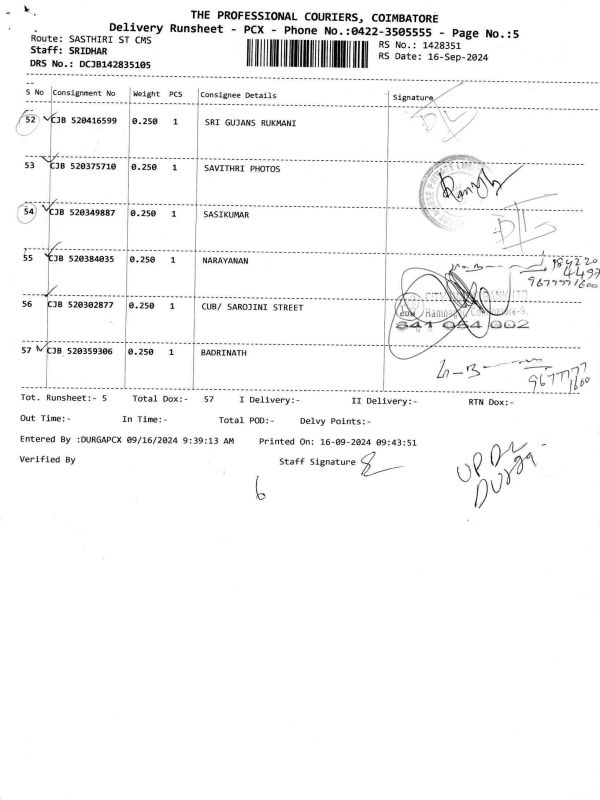 THE PROFESSIONAL COURIERS, COIMBATORE
Delivery Runsheet - PCX - Phone No.:0422-3505555 - Page No.:5
Route: SASTHIRI ST CMS
RS No.: 1428351
Staff: SRIDHAR
RS Date: 16-Sep-2024
DRS No.: DCJB142835105
S No Consignment No Weight PCS Consignee Details Signature
52 CJB 520416599 0.250 1 SRI GUJANS RUKMANI
53 CJB 520375710 0.250 1 SAVITHRI PHOTOS
54 CJB 520349887 0.250 1 SASIKUMAR
55 CJB 520384035 0.250 1 NARAYANAN
9677771600
56 CJB 520302877 0.250 1 CUB/ SAROJINI STREET
641 054 002
57 CJB 520359306 0.250 1 BADRINATH
9677777
1600
Tot. Runsheet:- 5 Total Dox:- 57 I Delivery:- II Delivery:- RTN Dox:-
Out Time:- In Time:- Total POD:- Delvy Points:-
Entered By :DURGAPCX 09/16/2024 9:39:13 AM Printed On: 16-09-2024 09:43:51
Verified By Staff Signature
6
Durga